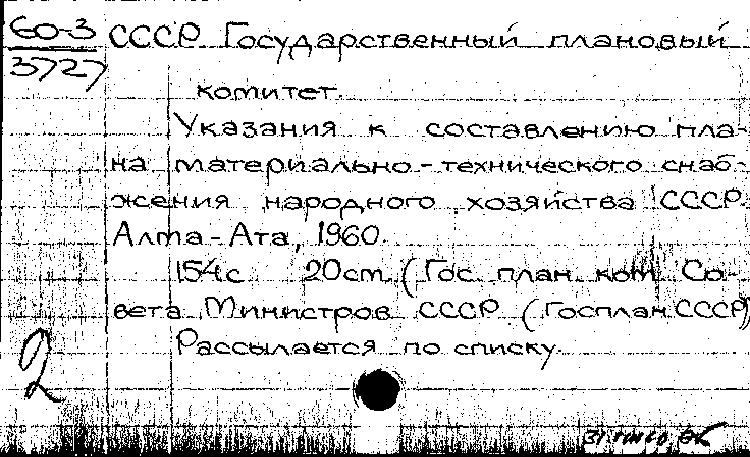 60-3
3727
СССР Государственный плановый
комитет.
Указания к составлению пла-
на материально-технического снаб-
жения народного хозяйства СССР.
Алма-Ата, 1960.
154с 20см (Гос. план. ком. Со-
вета Министров СССР (Госплан СССР)
Рассылается по списку.
2